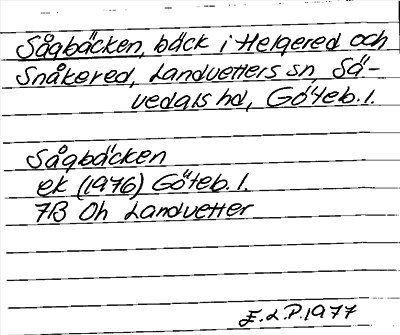 Sågbäcken, bäck i Helgered och
Snåkered, Landvetters sn, Sä-
vedals hd, Göteb. l.
Sågbäcken
ek (1976) Göteb. l.
7B Oh Landvetter
E.L.P. 1977